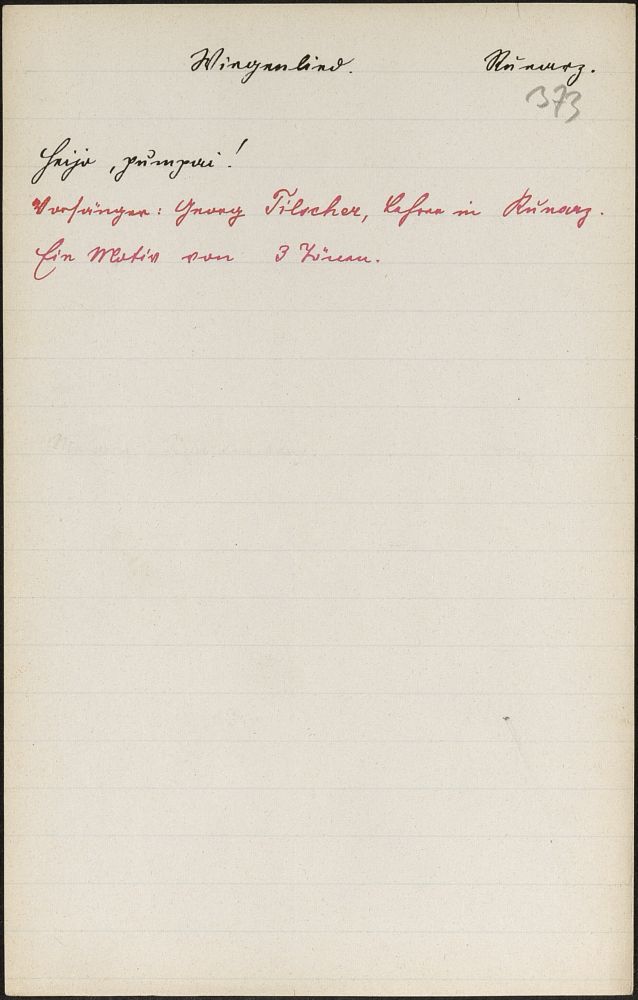 Wiegenlied. Runarz.
373
Heijo, pumpai!
Vorsänger: Georg Tilscher, Lehrer in Runarz.
Ein Motiv von 3 Tönen.